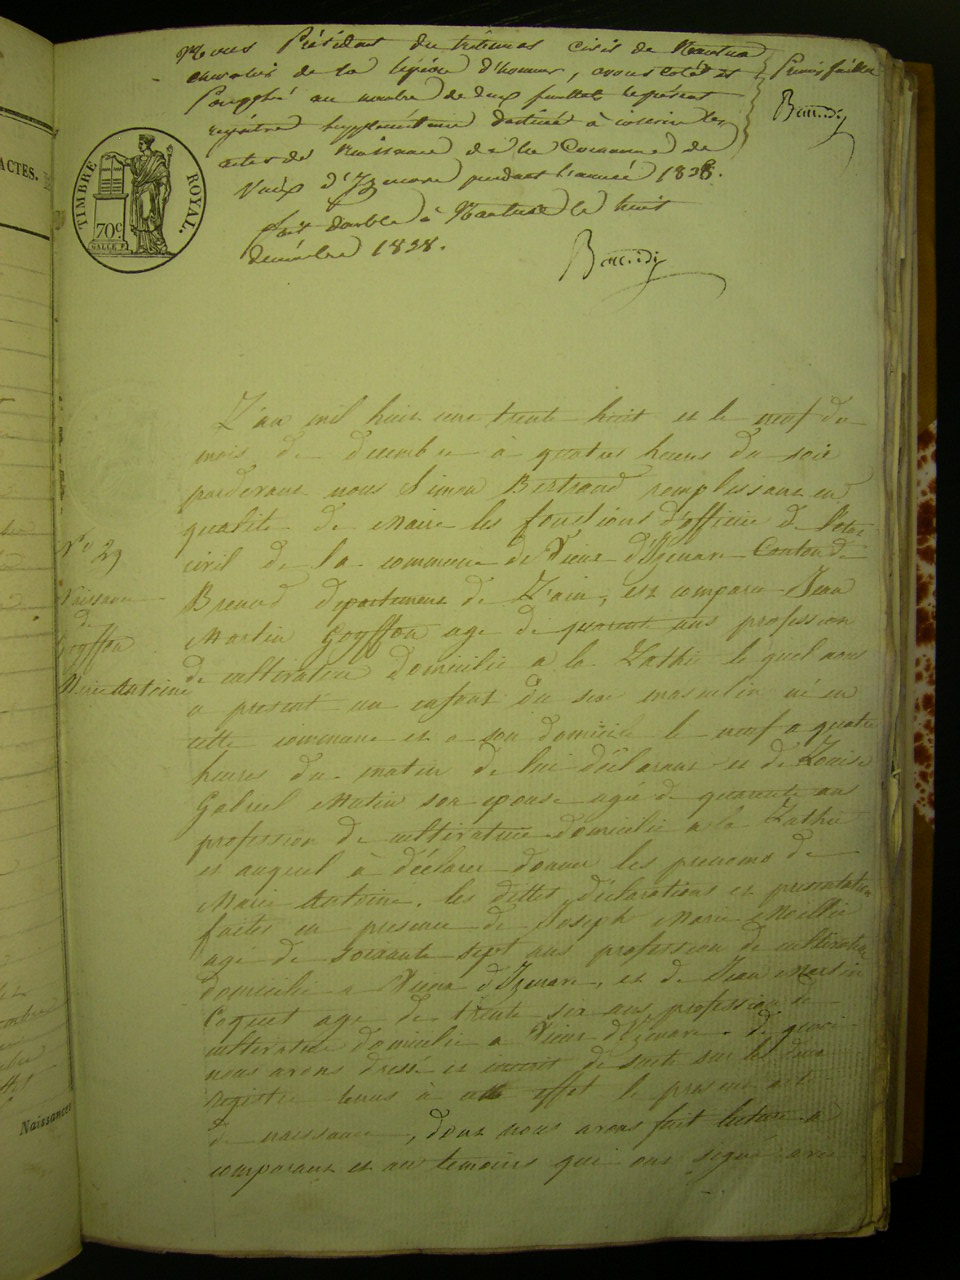 ACTES.
TIMBRE ROYAL.
70c.
Nous Président du tribunal civil de Nantua
chevalier de la légion d'honneur, avons coté et
Paraphé au nombre de deux feuillets le présent
registre supplémentaire destiné à inscrire les
actes de Naissance de la Commune de
Vieux d'Izenave pendant l'année 1838.
fait double à Nantua le huit
décembre 1838.
Premier feuillet
L'an mil huit cent trente huit et le neuf du
mois de decembre à quatre heures du soir
pardevant nous Simon Bertrand remplissant en
qualité de Maire les fonctions d'officier de l'état
civil de la commune de Vieux d'Izenave Canton de
Brenod departement de L'ain, est comparu Jean
Martin Goyffon age de quarente ans profession
de cultivateur domicilié a la Lathe le quel nous
a presenté un enfant du sexe masculin né en
cette commune et a son domicile le neuf a quatre
heures du matin de lui déclarant et de Louise
Gabriel Martin son epouse agée de quarente ans
profession de cultivatrice domicilié a la Lathe
et auquel à déclaré donner les prenoms de
Marie Antoine. les dittes déclarations et presentation
faites en presence de Joseph Marie
agé de soixante sept ans profession de cultivateur
domicilié a Vieux d'Izenave, et de Jean Martin
Coquet age de trente six ans profession de
cultivateur domicilié a Vieux d'Izenave. de quoi
nous avons dressé et inscrit de suite sur les deux
registre tenus à cette effet le present acte
de naissance, dont nous avons fait lecture a
comparant et au temoins qui ont signé avec
N° 29
Naissance
de
Goyffon
Marie Antoine
Naissances